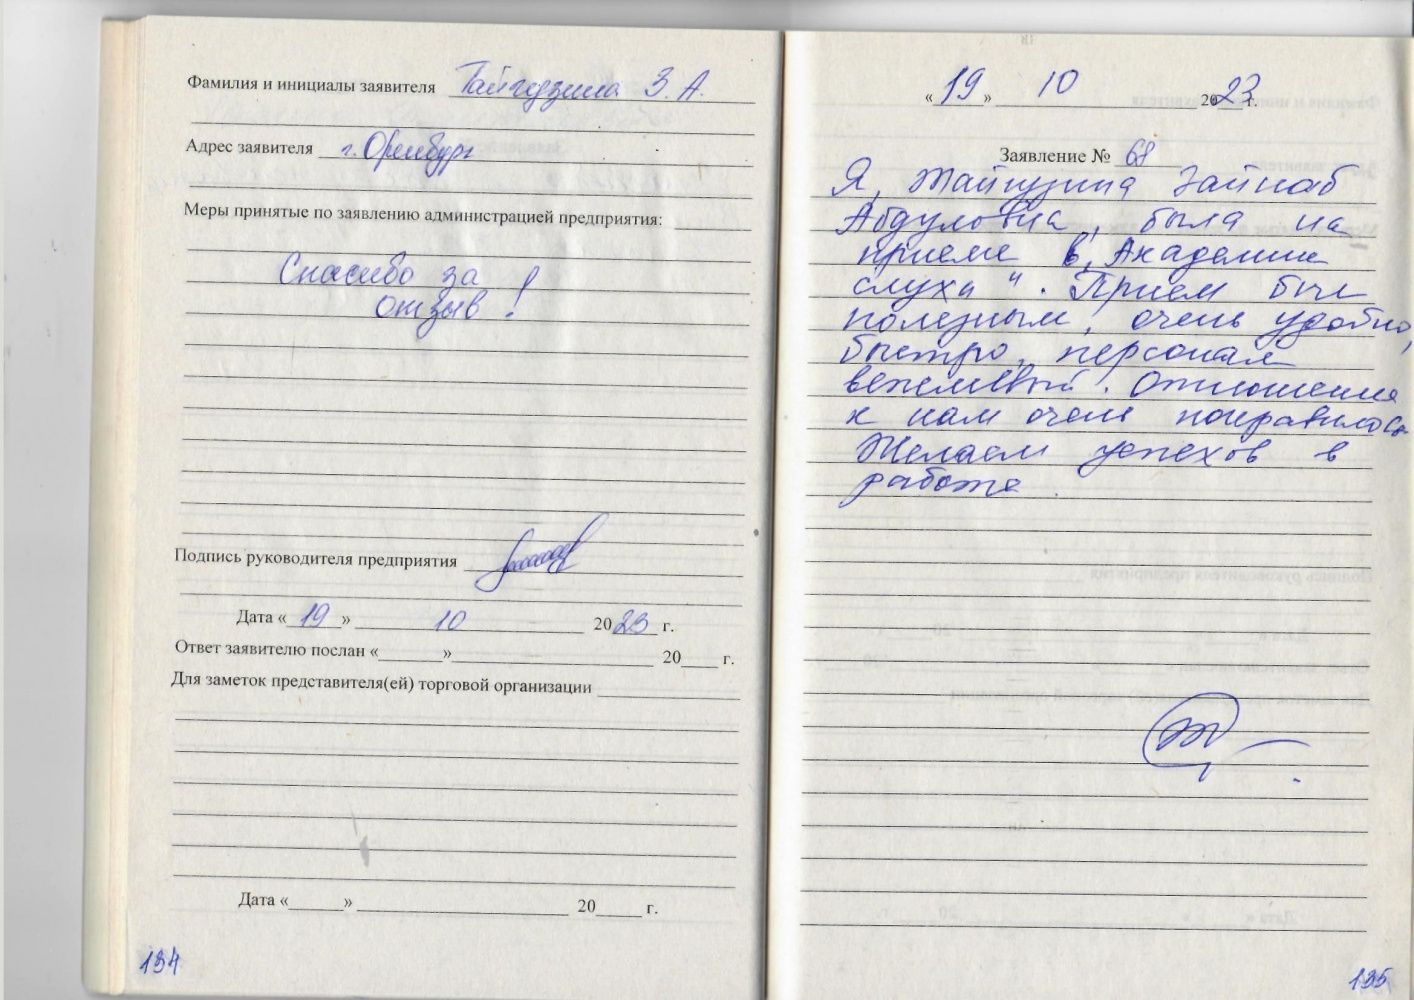 Фамилия и инициалы заявителя Тайгузина З. А.
Адрес заявителя г. Оренбург
Меры принятые по заявлению администрацией предприятия:
Спасибо за
отзыв!
Подпись руководителя предприятия
Дата «19» 10 2023 г.
Ответ заявителю послан «» 20 г.
Для заметок представителя(ей) торговой организации
Дата «» 20 г.
134
«19» 10 2023 г.
Заявление № 68
Я, Тайгузина Зайнаб
Абдуловна, была на
приеме в „Академии
слуха“. Прием был
полезным, очень удобно,
быстро, персонал
вежливый. Отношение
к нам очень понравилось.
Желаем успехов в
работе.
135